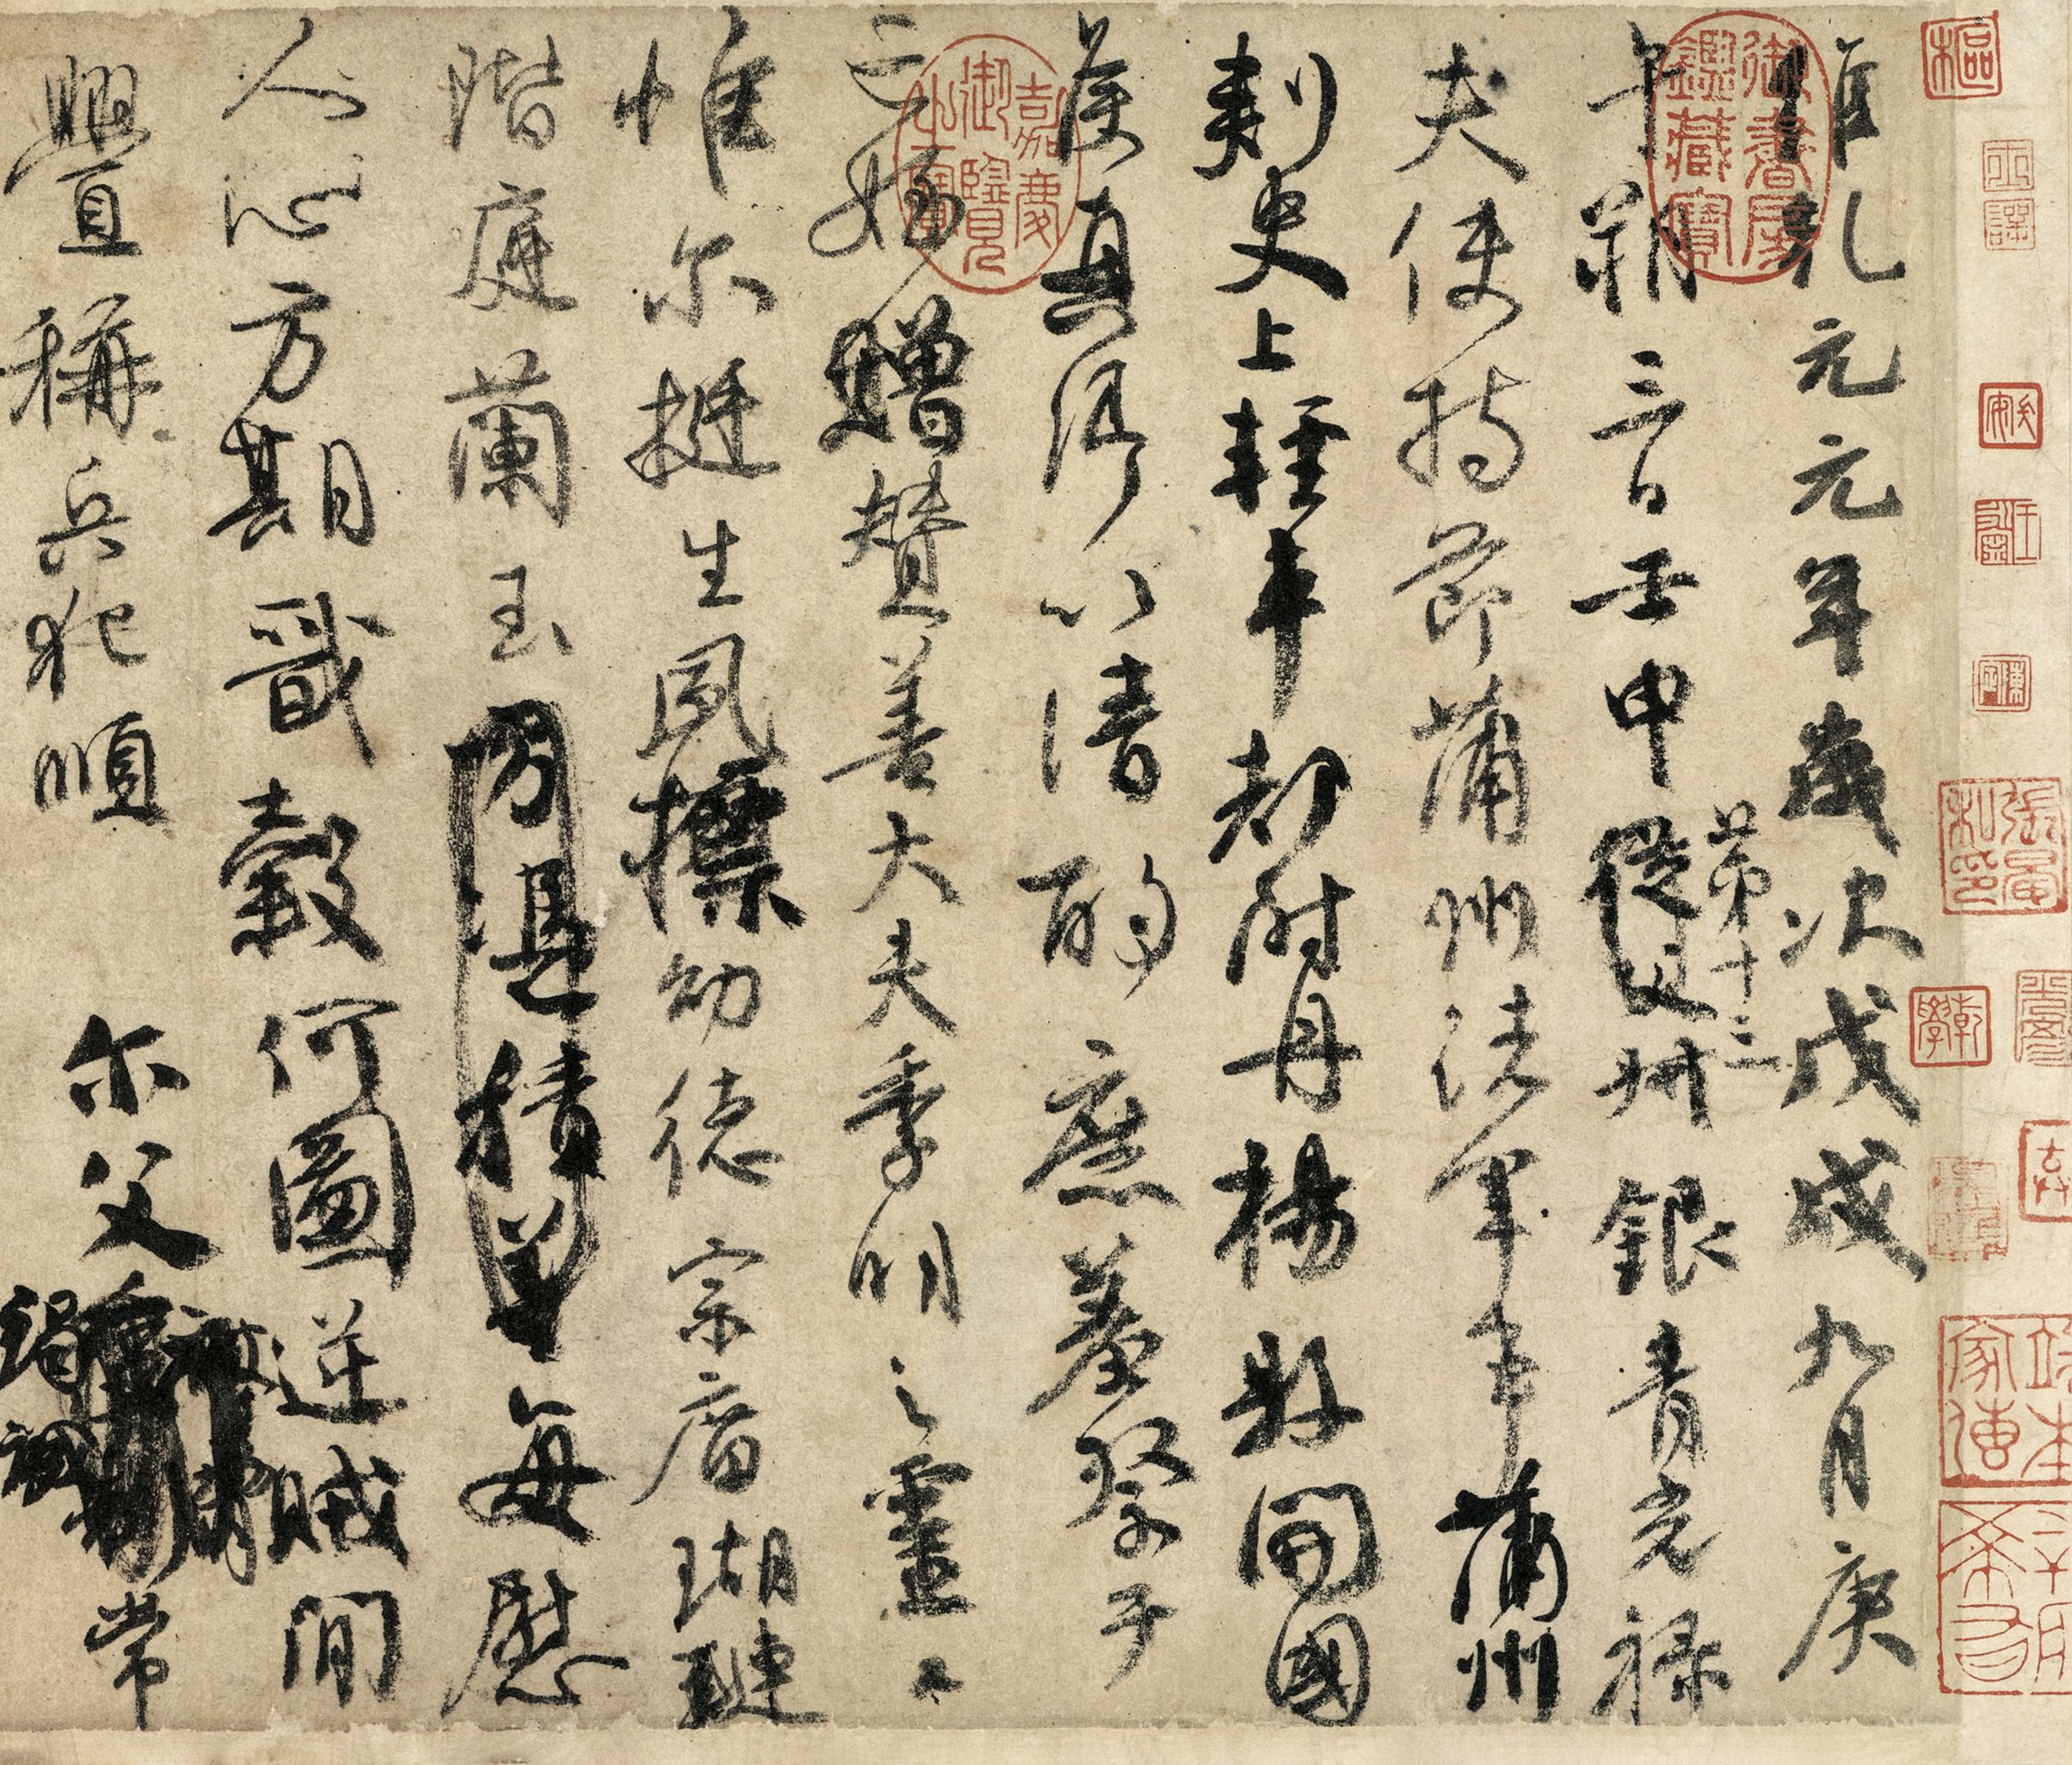 維乾元元年歲次戊戌九月庚
午朔三日壬申第十三從父叔銀青光祿
夫使持節蒲州諸軍事蒲州
刺史上輕車都尉丹楊縣開國
侯真卿以清酌庶羞祭于
亡姪贈贊善大夫季明之靈曰
惟爾挺生夙標幼德宗廟瑚璉
階庭蘭玉每慰
人心方期戩穀何圖逆賊間
釁稱兵犯順爾父常